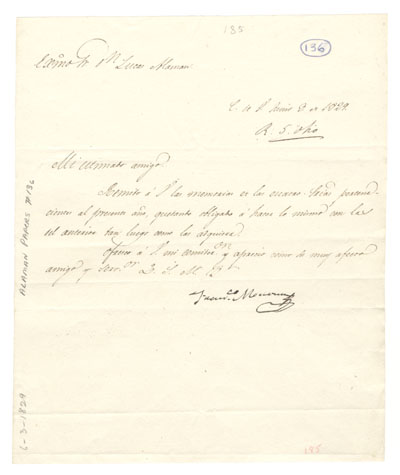 185
136
Exmo Sr Dn Lucas Alaman.
Junio 3 de 1829.
Mi estimado amigo
Remito á V. las memorias de las
al presente año, quedando obligado á hacer lo mismo con las
del anterior tan luego como las adquiera.
Ofrezco á V. mi y aprecio como su muy afecto
amigo y Servor Q. S. M. B.
Franco
ALAMAN PAPERS #136
6-3-1829
195